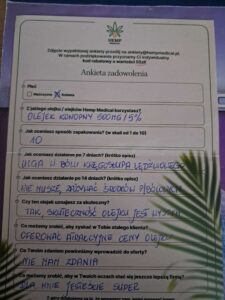 HEMP
MEDICAL
Zdjęcie wypełnionej ankiety prześlij na ankiety@hempmedical.pl.
W ramach podziękowania przyznamy Ci indywidualny
kod rabatowy o wartości 50zł!
Ankieta zadowolenia
Płeć:
Mężczyzna Kobieta
Z jakiego olejku / olejków Hemp Medical korzystasz?:
OLEJEK KONOPNY 500MG/5%
Jak oceniasz sposób zapakowania? (w skali od 1 do 10)
10
Jak oceniasz działanie po 7 dniach? (krótko opisz)
ULGA W BÓLU KRĘGOSŁUPA LĘDŹWIOWEGO
Jak oceniasz działanie po 14 dniach? (krótko opisz)
NIE MUSZĘ ZAŻYWAĆ ŚRODKÓW P/BÓLOWYCH
Czy ten olejek uznajesz za skuteczny?
TAK, SKUTECZNOŚĆ OLEJKU JEST
Co możemy zrobić, aby zyskać w Tobie stałego klienta?
OFEROWAĆ ATRAKCYJNE CENY OLEJKU
Co Twoim zdaniem powinniśmy wprowadzić do oferty?
NIE MAM ZDANIA
Co możemy zrobić, aby w Twoich oczach stać się jeszcze lepszą firmą?
DLA MNIE JESTEŚCIE SUPER